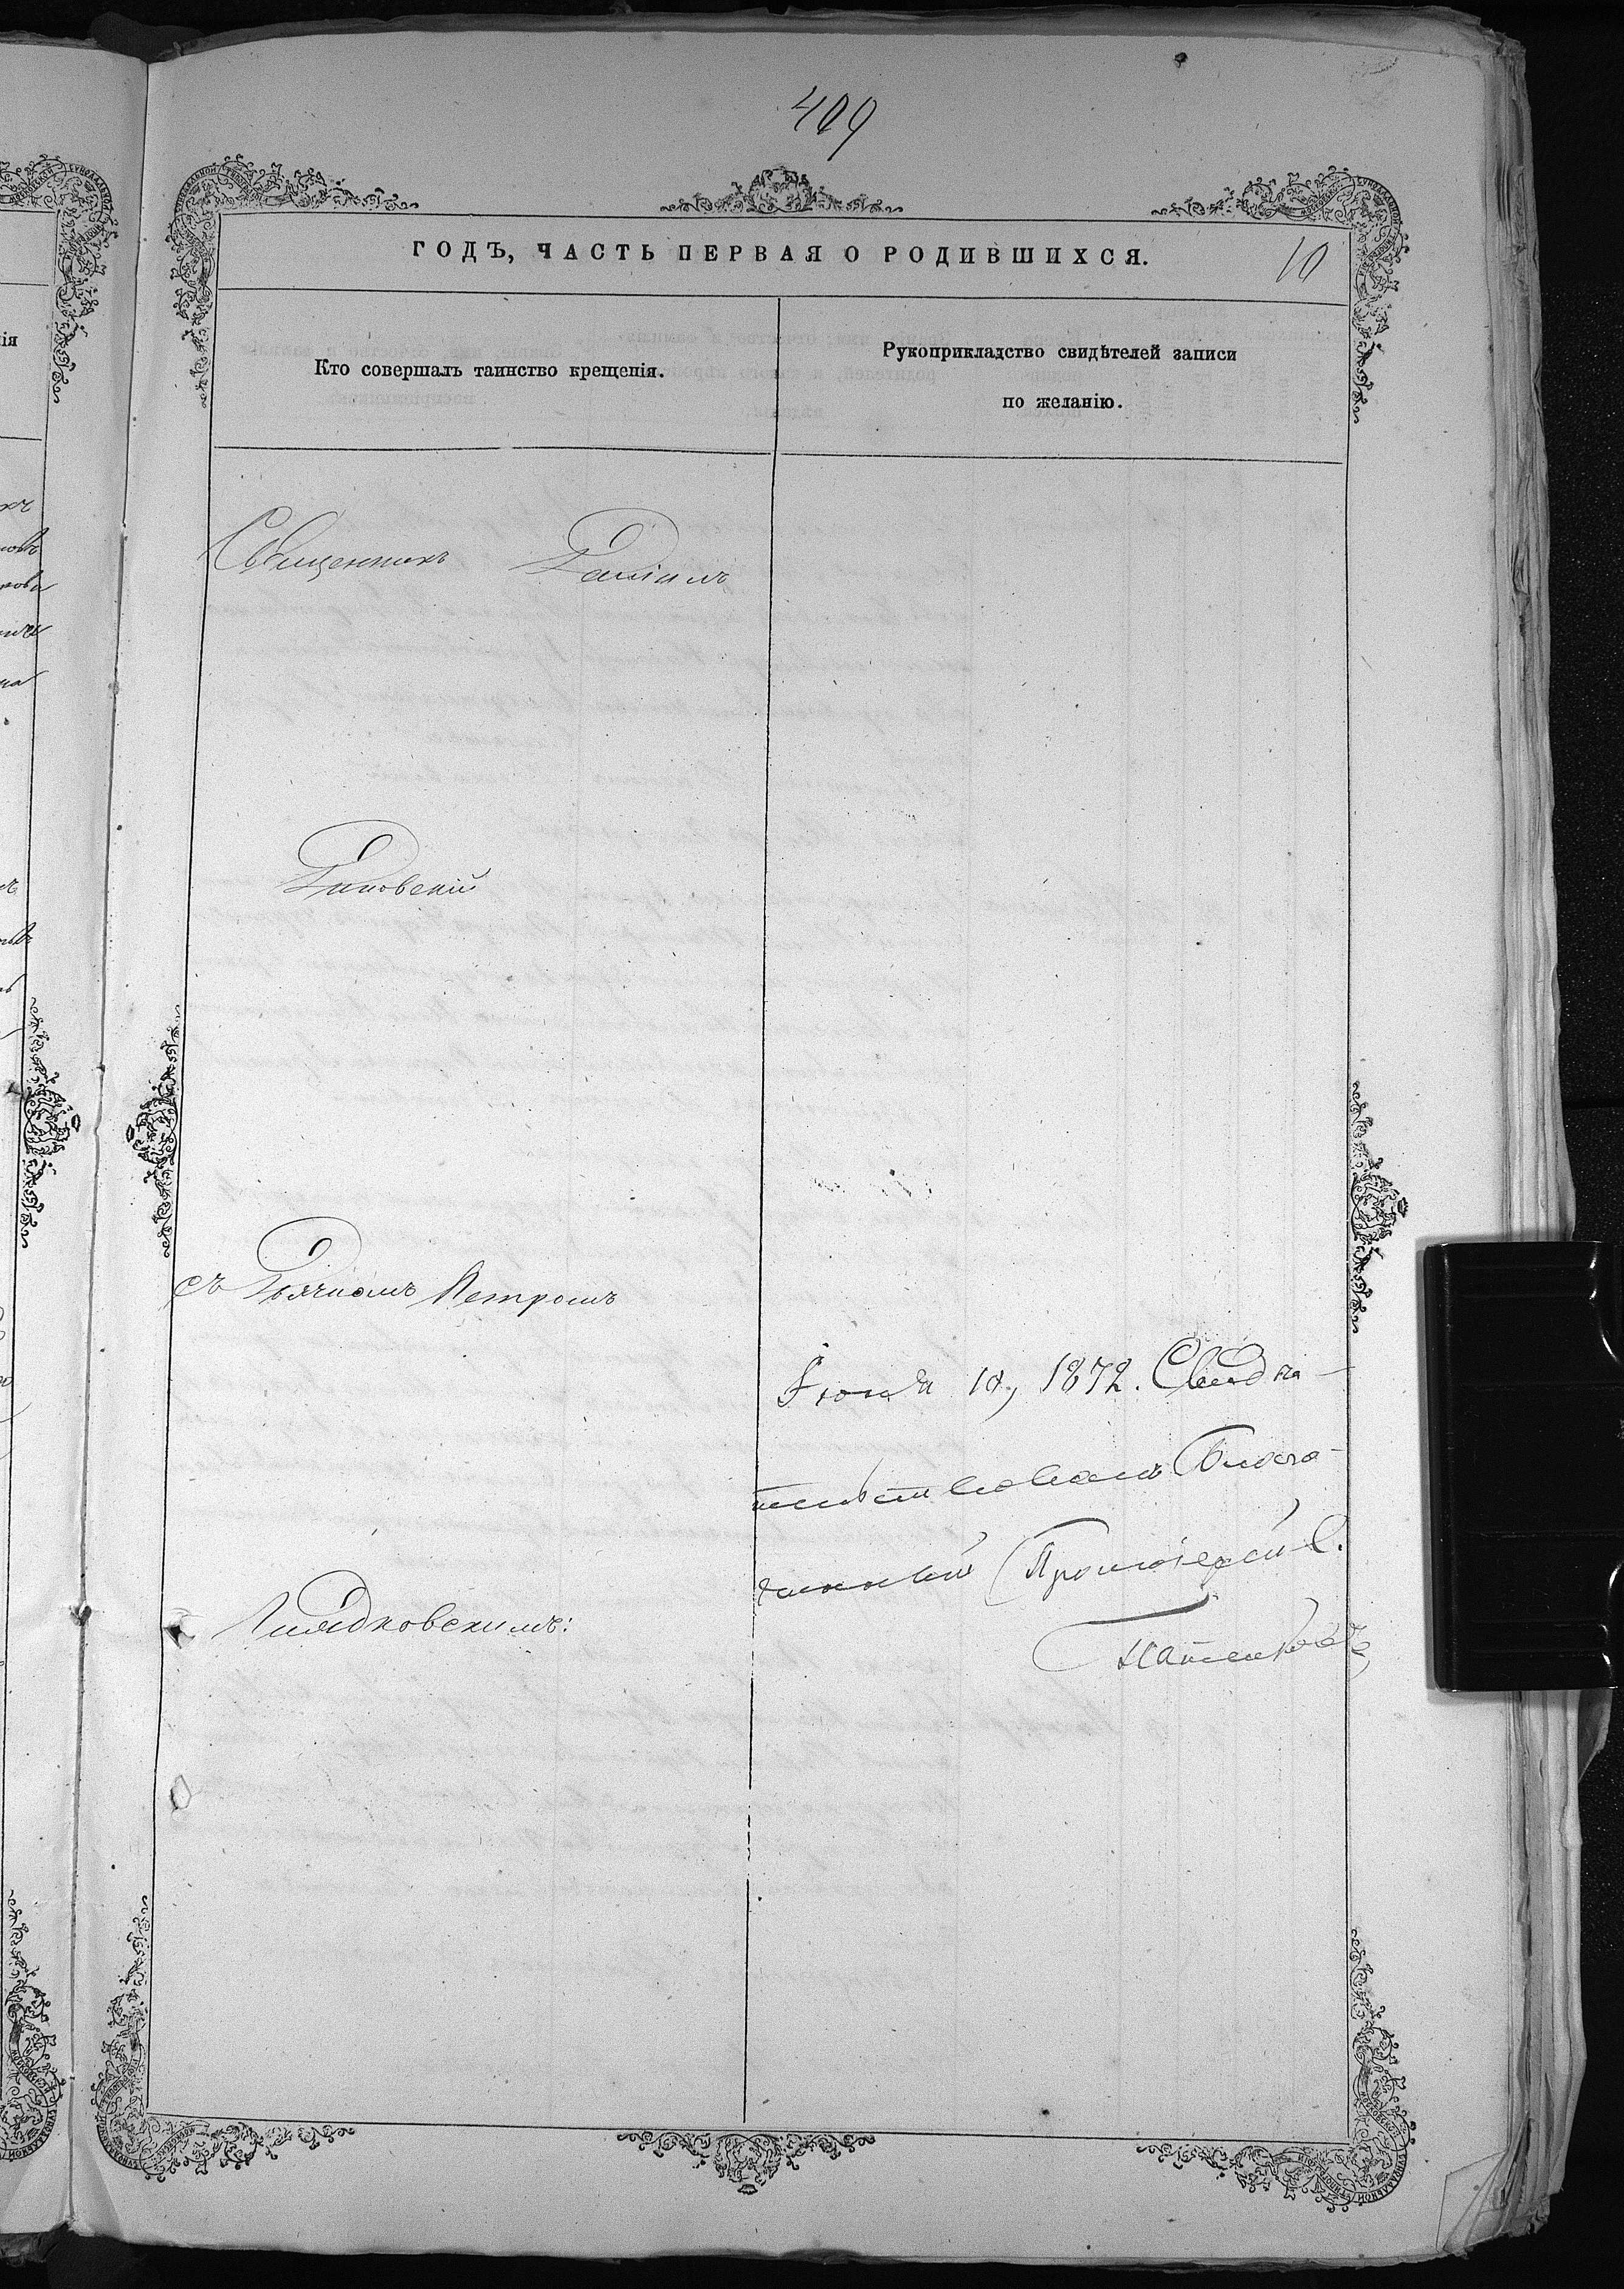 409
ГОДЪ, ЧАСТЬ ПЕРВАЯ О РОДИВШИХСЯ.
10
Кто совершалъ таинство крещенія.
Рукоприкладство свидѣтелей записи
по желанію.
Священникъ Даніилъ
Диковскій
съ Дьячкомъ Петромъ
Лядковскимъ:
Іюня 10, 1872. Свидѣ-
тельствовалъ Благо-
чинный Протоіерей С.